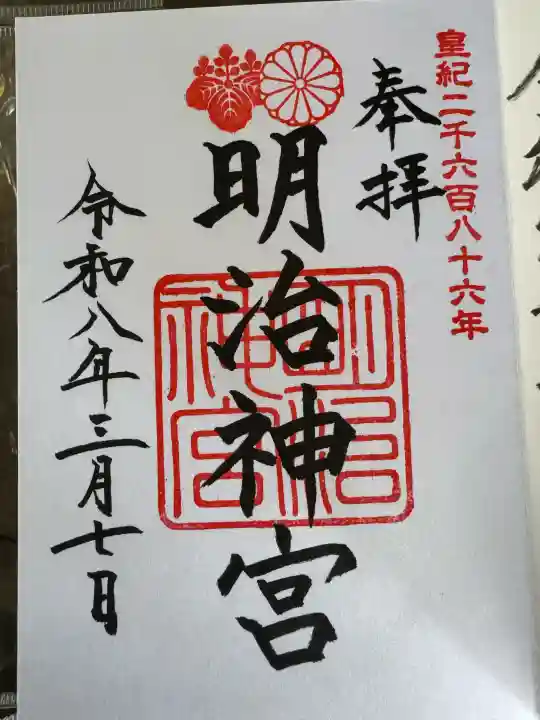 皇紀二千六百八十六年
奉拝
明治神宮
明治神宮
令和八年三月七日